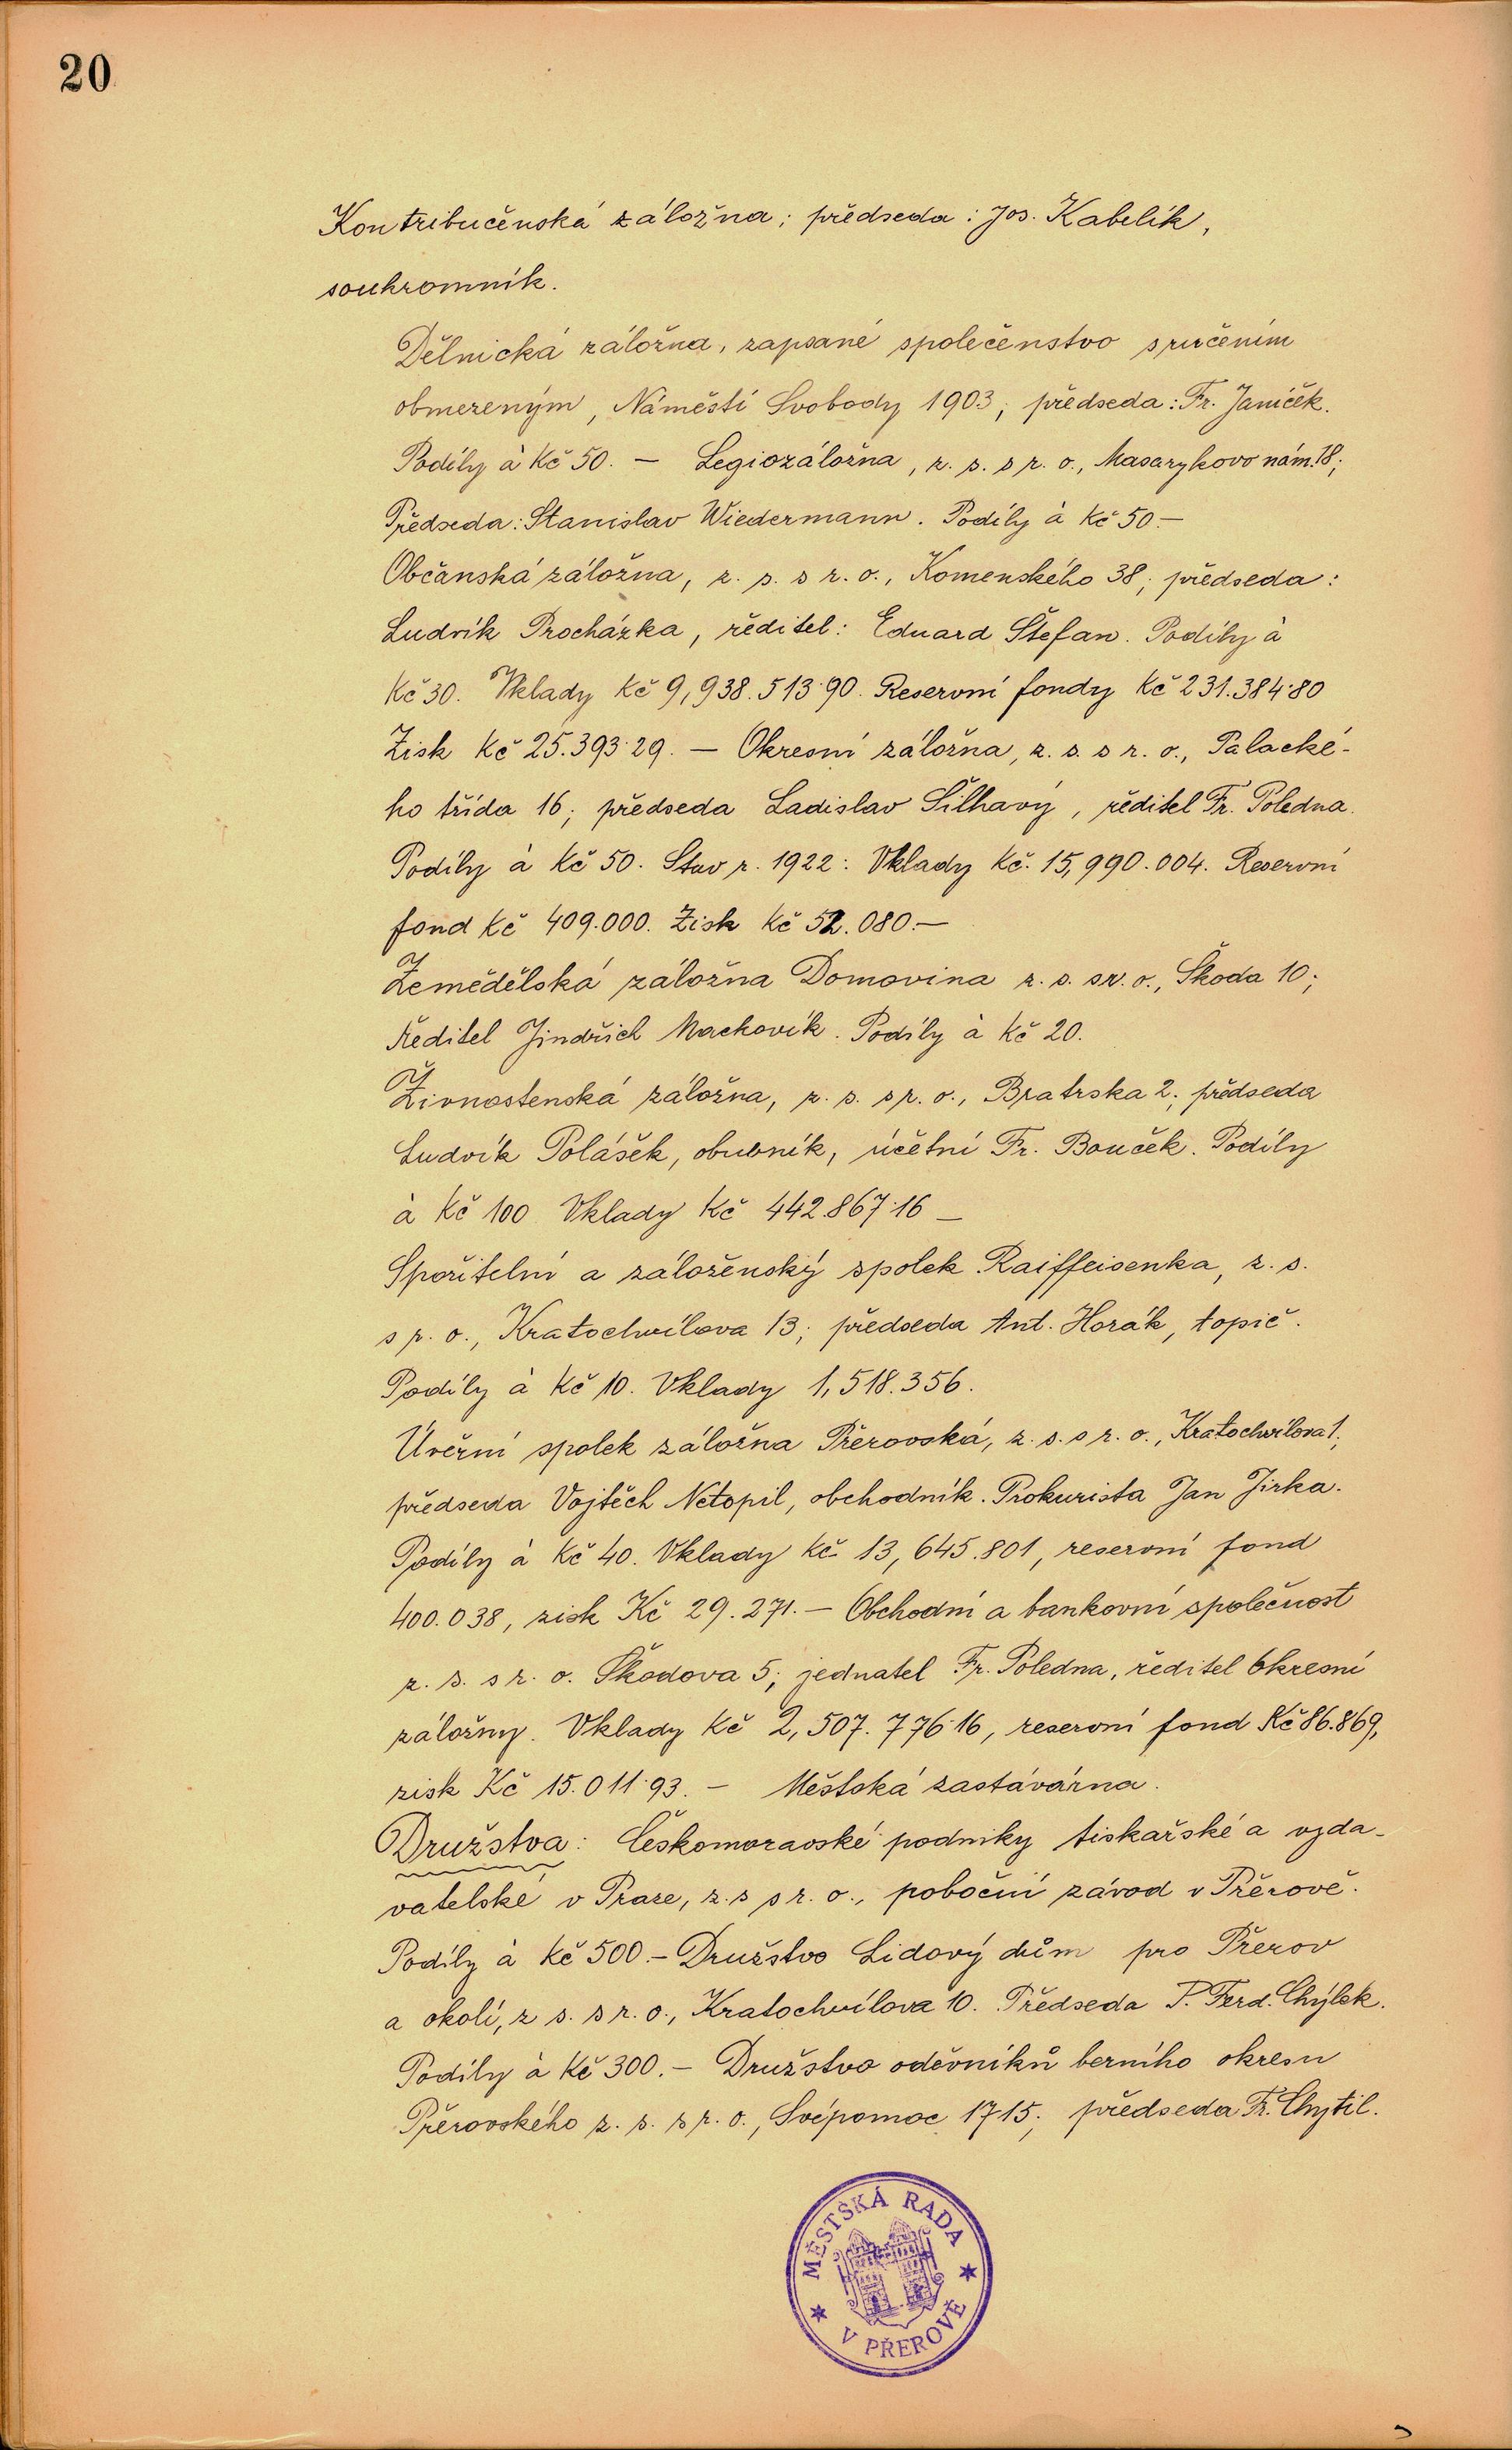 20
Kontribučenská záložna; předseda: Jos. Kabelík,
soukromník.
Dělnická záložna, zapsané společenstvo s ručením
obmezeným, Náměstí Svobody 1903; předseda: Fr. Janíček.
Podíly à Kč 50. — Legiozáložna, z. s. s r. o., Masarykovo nám. 18;
Předseda: Stanislav Wiedermann. Podíly à Kč 50.—
Občanská záložna, z. s. s r. o., Komenského 38; předseda:
Ludvík Procházka, ředitel: Eduard Štefan. Podíly à
Kč 30. Vklady Kč 9,938.513·90. Reservní fondy Kč 231.384·80
Zisk Kč 25.393·29. — Okresní záložna, z. s. s r. o., Palacké-
ho třída 16; předseda Ladislav Šilhavý, ředitel Fr. Poledna.
Podíly à Kč 50. Stav r. 1922: Vklady Kč. 15,990.004. Reservní
fond Kč 409.000. Zisk Kč 52.080.—
Zemědělská záložna Domovina z. s. s r. o., Škoda 10;
ředitel Jindřich Mackovík. Podíly à Kč 20.
Živnostenská záložna, z. s. s r. o., Bratrska 2; předseda
Ludvík Polášek, obuvník, účetní Fr. Bouček. Podíly
à Kč 100 Vklady Kč 442.867·16 —
Spořitelní a záloženský spolek Raiffeisenka, z. s.
s r. o., Kratochvílova 13; předseda Ant. Horák, topič.
Podíly à Kč 10. Vklady 1,518.356.
Úvěrní spolek záložna Přerovská, z. s. s r. o., Kratochvílova 1;
předseda Vojtěch Netopil, obchodník. Prokurista Jan Jirka.
Podíly à Kč 40. Vklady Kč 13,645.801, reservní fond
400.038, zisk Kč 29.271.— Obchodní a bankovní společnost
z. s. s r. o. Škodova 5; jednatel Fr. Poledna, ředitel Okresní
záložny. Vklady Kč 2,507.776·16, reservní fond Kč 86.869,
zisk Kč 15.011·93. — Městská zastavárna.
Družstva: Českomoravské podniky tiskařské a vyda-
vatelské v Praze, z. s s r. o., poboční závod v Přerově.
Podíly à Kč 500.— Družstvo Lidový dům pro Přerov
a okolí, z s. s r. o., Kratochvílova 10. Předseda P. Ferd. Chýlek.
Podíly à Kč 300.— Družstvo oděvníků berního okresu
Přerovského z. s. s r. o., Svépomoc 1715; předseda Fr. Chytil.
MĚSTSKÁ RADA
V PŘEROVĚ